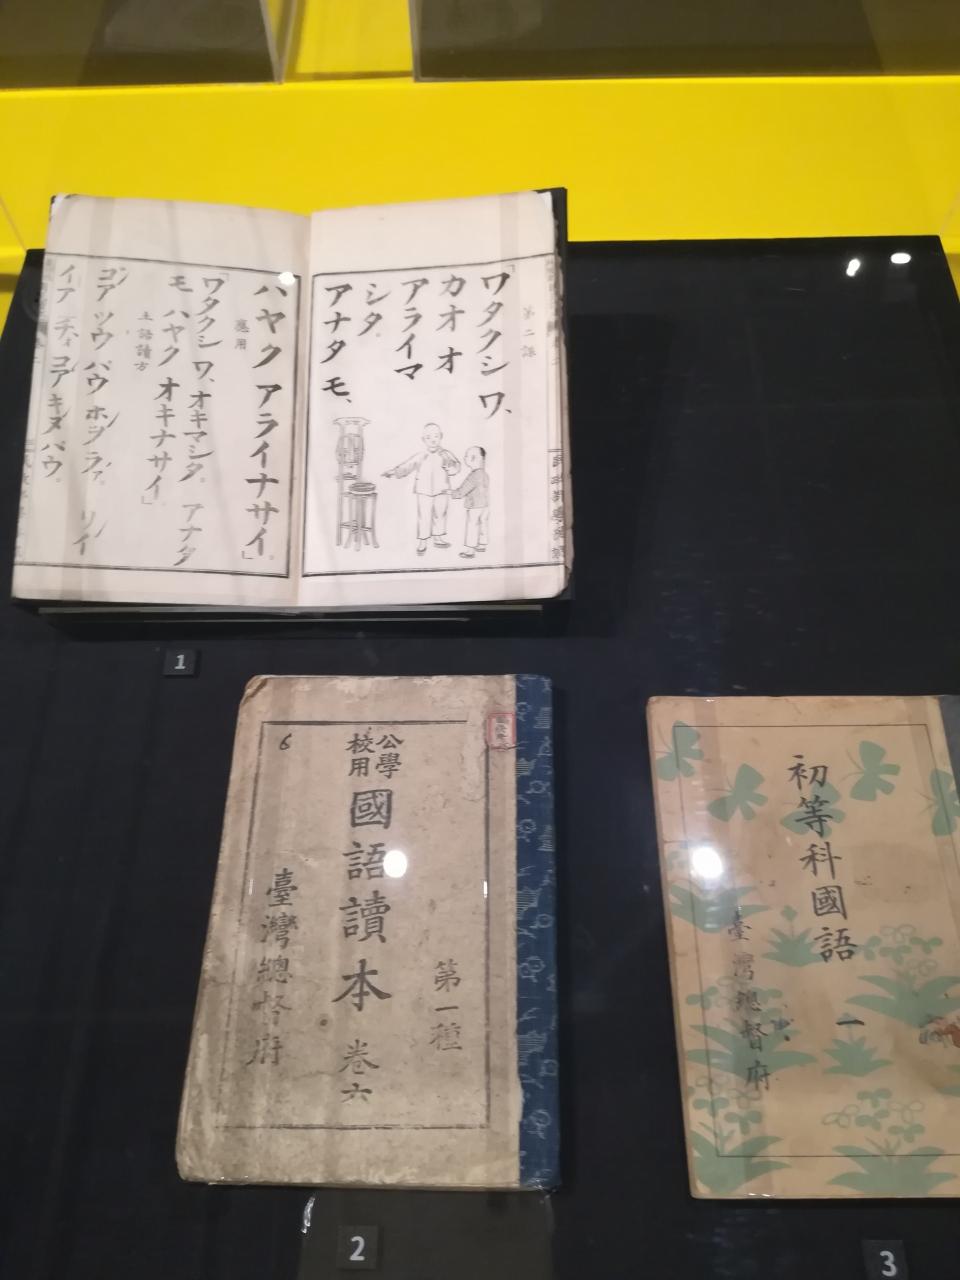 第二課
「ワタクシ ワ、
カオ オ
アライマ
シタ。
アナタ モ、
ハヤク アライナサイ。」
應用
「ワタクシ ワ、オキマシタ。 アナタ
モ ハヤク オキナサイ」
土語讀方
1
6
公學
校用
國語讀本 卷六
第一種
臺灣總督府
2
初等科國語 一
臺灣總督府
3